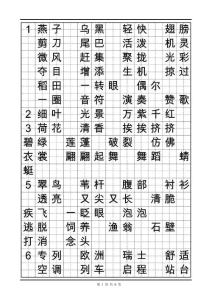 1 燕子 乌黑 轻快 翅膀
剪刀 尾巴 活泼 机灵
微风 赶集 聚拢 光彩
夺目 增添 生机 掠过
稻田 一转眼 偶尔
一圈 音符 演奏 赞歌
2 细叶 光景 万紫千红
3 荷花 清香 挨挨挤挤
碧绿 莲蓬 破裂 仿佛
衣裳 翩翩起舞 舞蹈 蜻
蜓
5 翠鸟 苇杆 腹部 衬衫
透亮 又尖又长 清脆
疾飞 一眨眼 泡泡
逃脱 饲养 渔翁 石壁
打消 念头
6 专列 欧洲 瑞士 舒适
空调 列车 启程 站台